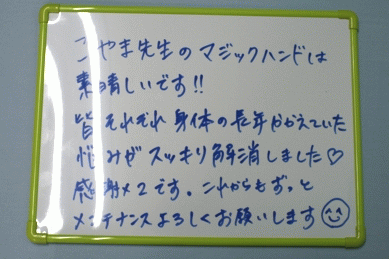 こやま先生のマジックハンドは
素晴しいです!!
皆それぞれ身体の長年かかえていた
悩みがスッキリ解消しました♡
感謝×2です。これからもずっと
メンテナンスよろしくお願いします